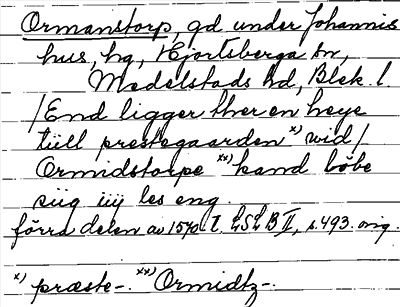 Ormanstorp, gd under Johannis
hus, hg, Hjortsberga sn,
Medelstads hd, Blek. l.
/End ligger ther en heye
tiill prestegaarden x) wid/
Ormidstorpe xx) kand löbe
siig iiij les eng.
förra delen av 1540-t. LSLB II, s. 493. orig.
x) præste-. xx) Ormidtz-.